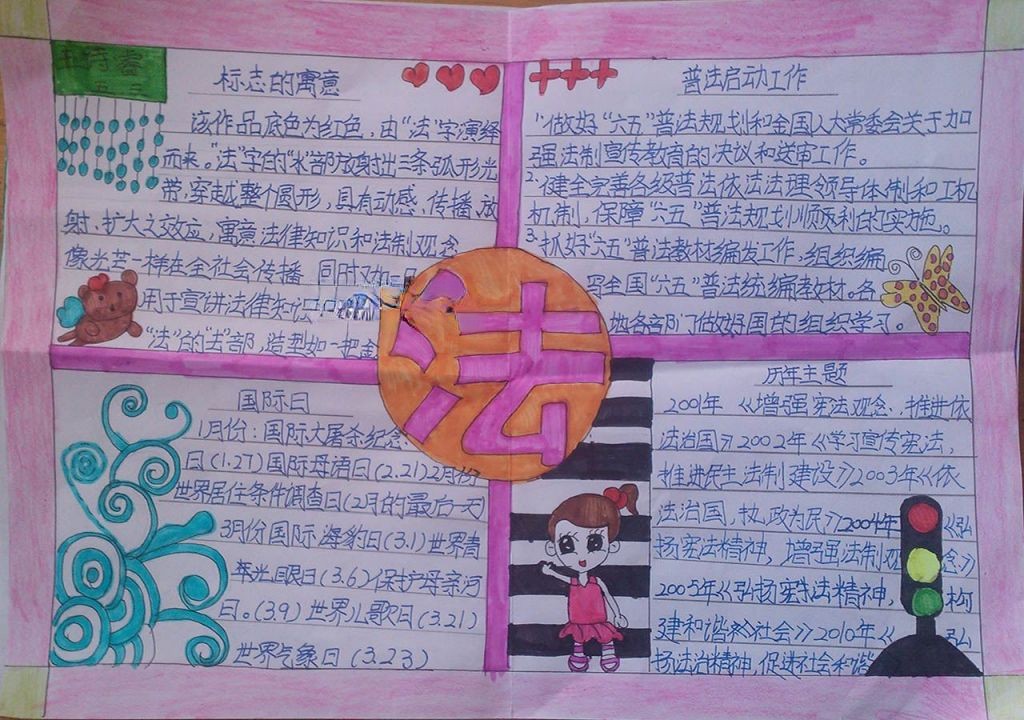 标志的寓意
该作品底色为红色,由"法"字演绎
而来。"法"字的"水"部放射出三条弧形光
带,穿越整个圆形,具有动感、传播、放
射、扩大之效应,寓意法律知识和法制观念
像光芒一样在全社会传播
用于宣讲法律知识
"法"的"去"部,造型如一把金
普法启动工作
1、做好"六五"普法规划和全国人大常委会关于加
强法制宣传教育的决议和送审工作。
2、健全完善各级普法依法治理领导体制和工机
机制,保障"六五"普法规划顺利的实施。
3、抓好"六五"普法教材编发工作,组织编
写全国"六五"普法统编教材。各
地各部门做好国的组织学习。
法
国际日
1月份:国际大屠杀纪念
日(1.27)国际母语日(2.21)2月份
世界居住条件调查日(2月的最后一天)
3月份国际海豹日(3.1)世界青
年光眼日(3.6)保护母亲河
日。(3.9)世界儿歌日(3.21)
世界气象日(3.23)
历年主题
2001年《增强宪法观念,推进依
法治国》2002年《学习宣传宪法,
推进民主法制建设》2003年《依
法治国,执政为民》2004年《弘
扬宪法精神,增强法制观念》
2005年《弘扬宪法精神,构
建和谐社会》2010年《弘
扬法治精神,促进社会和谐